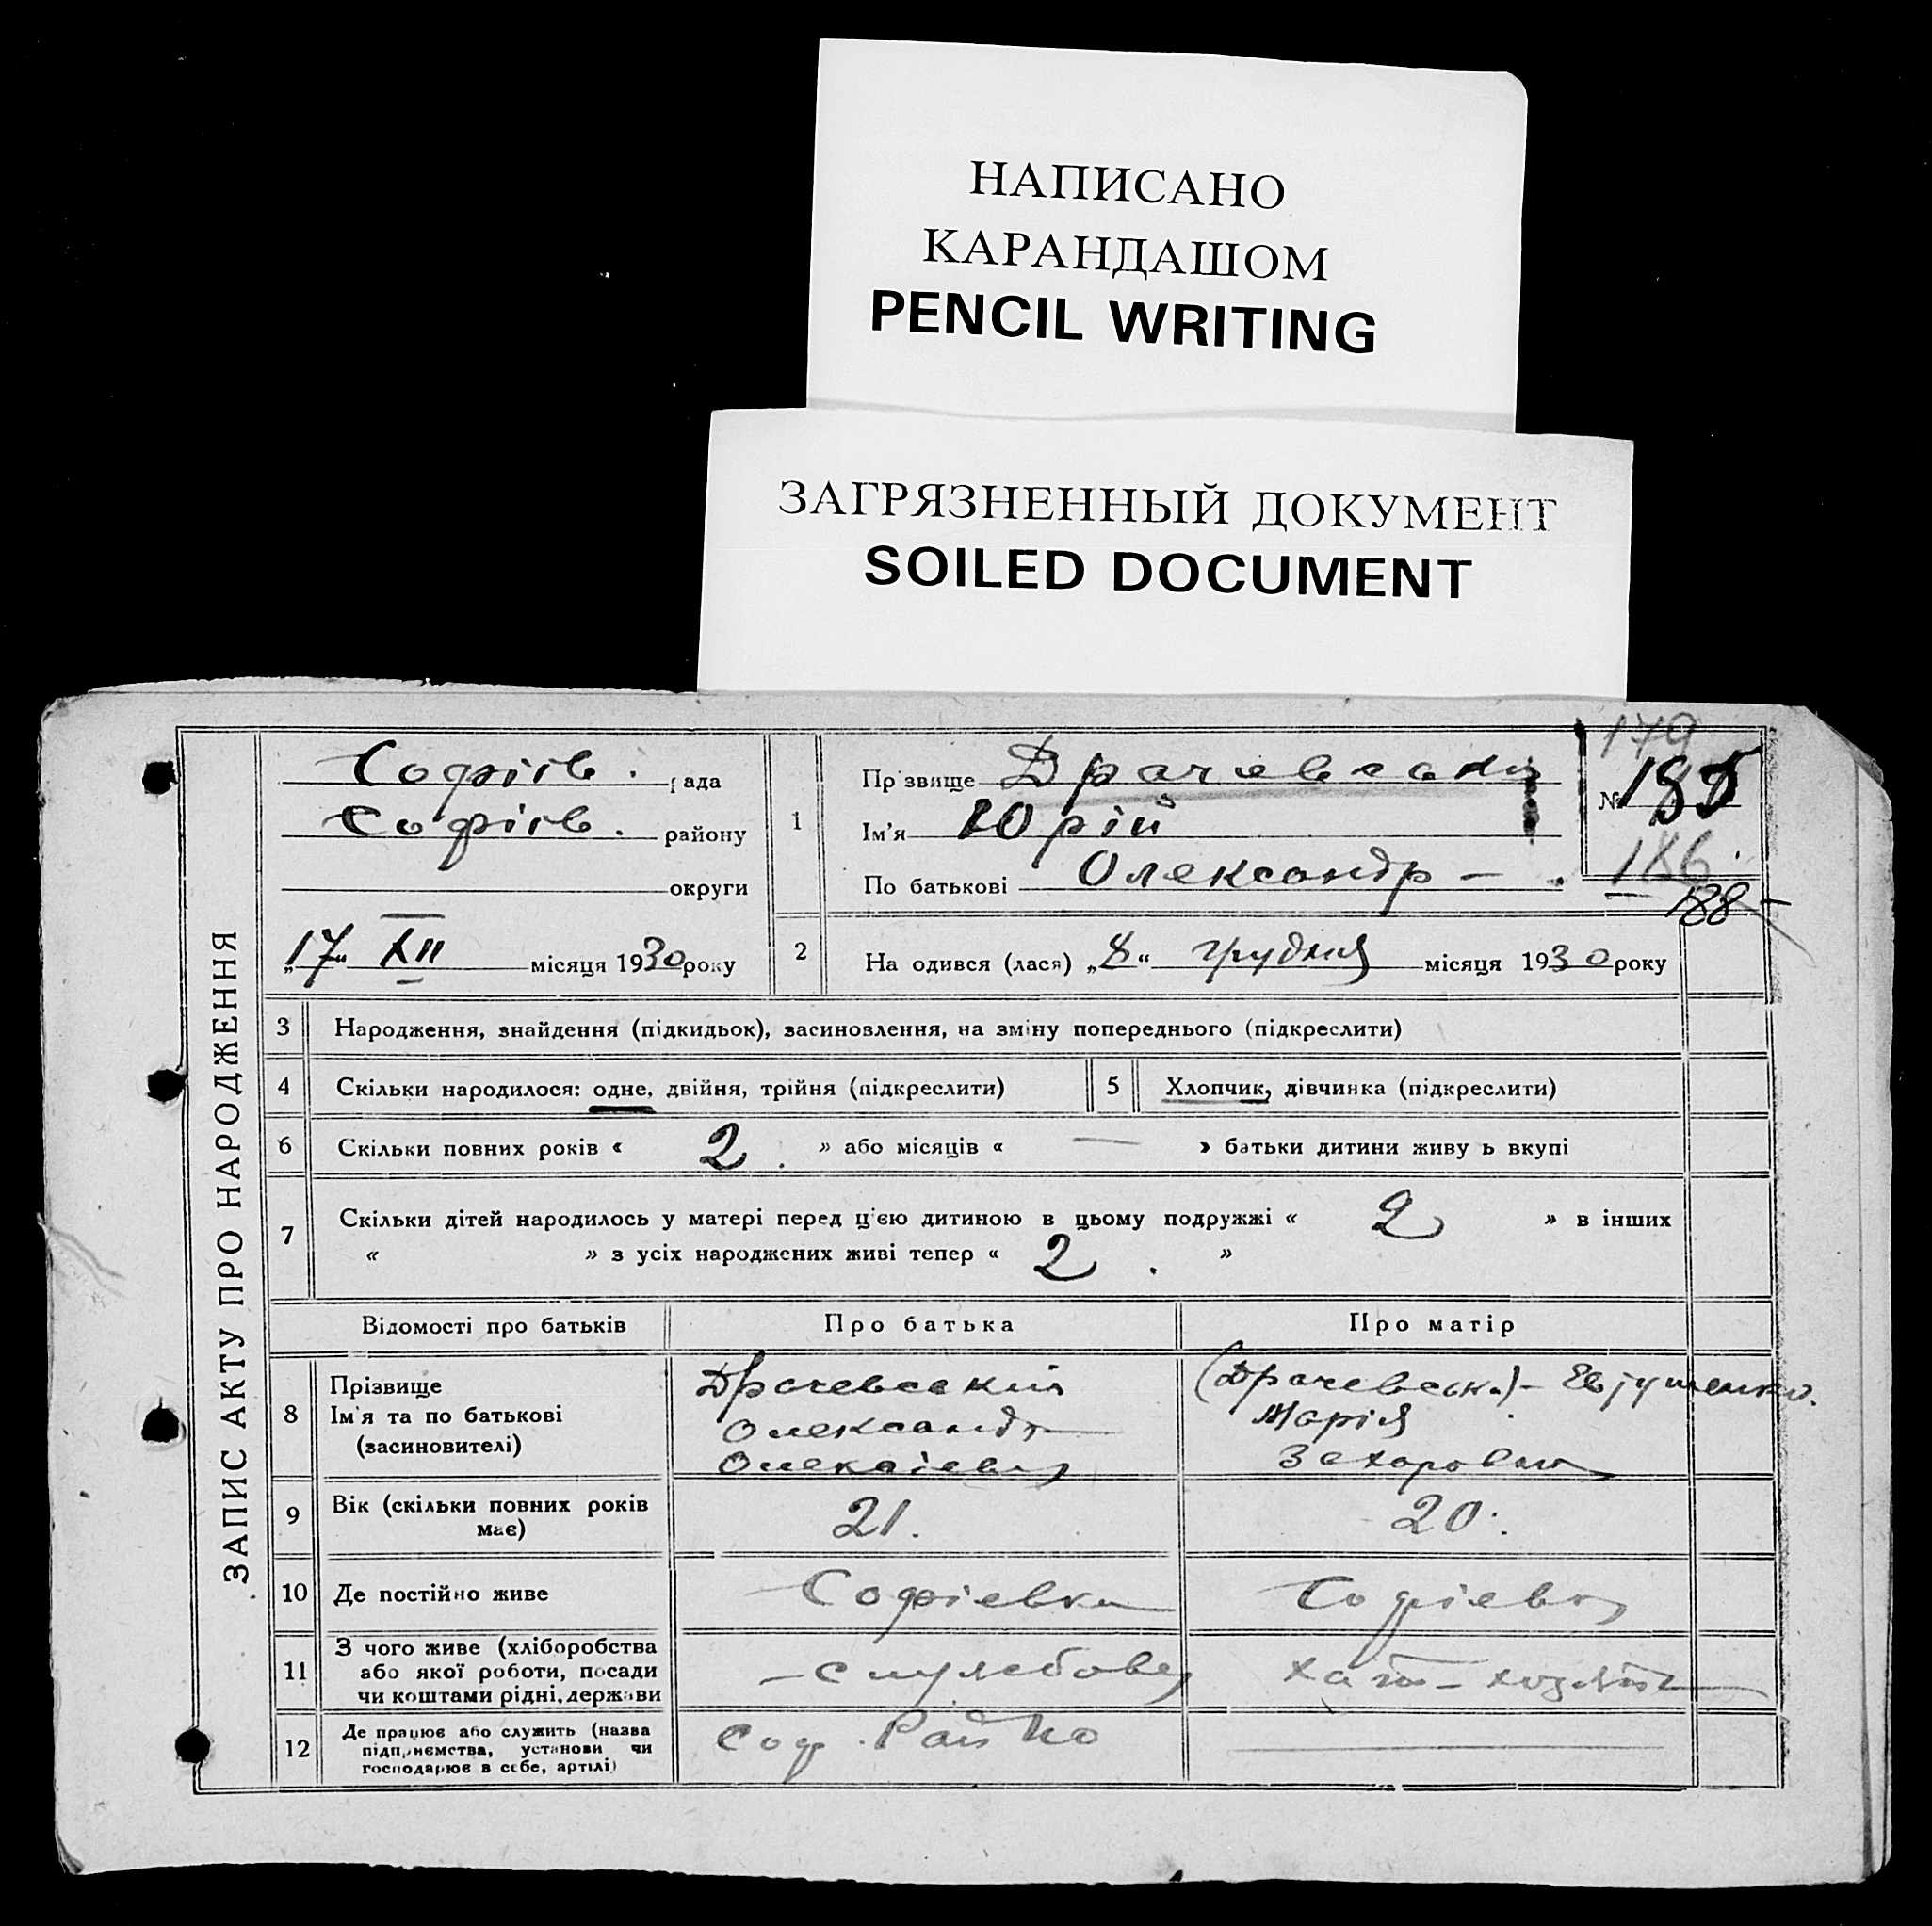 НАПИСАНО
КАРАНДАШОМ
PENCIL WRITING
ЗАГРЯЗНЕННЫЙ ДОКУМЕНТ
SOILED DOCUMENT
ЗАПИС АКТУ ПРО НАРОДЖЕННЯ
Софіїв. рада
Софіїв. району
округи
„17“ XII місяця 1930 року
1
Прізвище Драчевський
Ім'я Юрій
По батькові Олександр —
179
№ 185
186
188
2 На одився (лася) „8“ грудня місяця 1930 року
3 Народження, знайдення (підкидьок), засиновлення, на зміну попереднього (підкреслити)
4 Скільки народилося: одне, двійня, трійня (підкреслити)
5 Хлопчик, дівчинка (підкреслити)
6 Скільки повних років « 2. » або місяців « — » батьки дитини живу ь вкупі
7 Скільки дітей народилось у матері перед ц'єю дитиною в цьому подружжі « 2 » в інших
« » з усіх народжених живі тепер « 2. »
Відомості про батьків Про батька Про матір
8 Прізвище
Ім'я та по батькові
(засиновителі)
Драчевський
Олександр
(Драчевська) – Евтушенко.
Марія
Захаровна
9 Вік (скільки повних років має) 21. 20.
10 Де постійно живе Софіевка Софіевка
11 З чого живе (хліборобства
або якої роботи, посади
чи коштами рідні, держави
– службовец хат – хозяйка
12 Де працює або служить (назва
підприємства, установи чи
господарює в себе, артілі)
Соф.